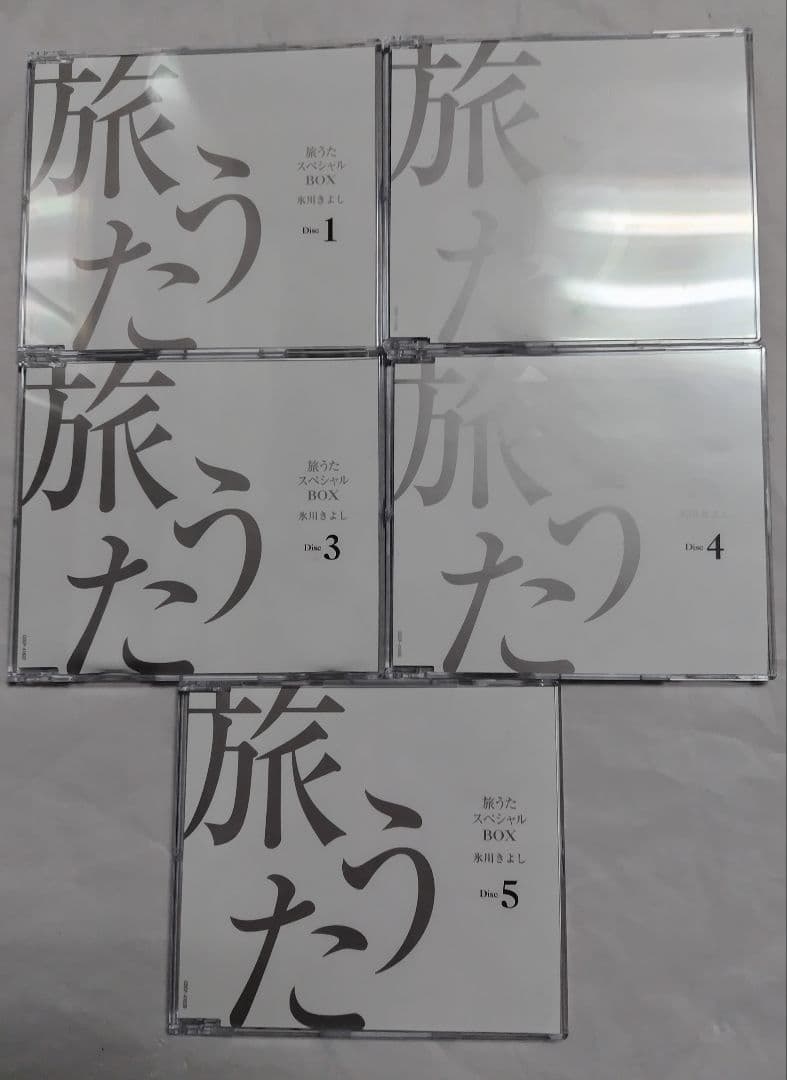 旅うた
旅うた
スペシャル
BOX
氷川きよし
Disc 1
旅
た
旅うた
旅うた
スペシャル
BOX
氷川きよし
Disc 3
旅うた
氷川きよし
Disc 4
旅うた
旅うた
スペシャル
BOX
氷川きよし
Disc 5